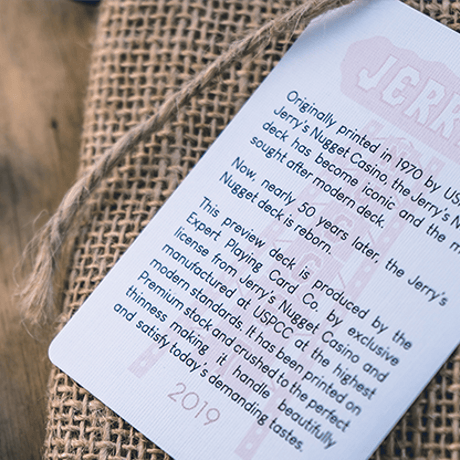 JERR
Originally printed in 1970 by US
Jerry's Nugget Casino, the Jerry's N
deck has become iconic and the m
sought after modern deck.
Now, nearly 50 years later, the Jerry's
Nugget deck is reborn.
This preview deck is produced by the
Expert Playing Card Co. by exclusive
license from Jerry's Nugget Casino and
manufactured at USPCC at the highest
modern standards. It has been printed on
Premium stock and crushed to the perfect
thinness making it handle beautifully
and satisfy today's demanding tastes.
2019